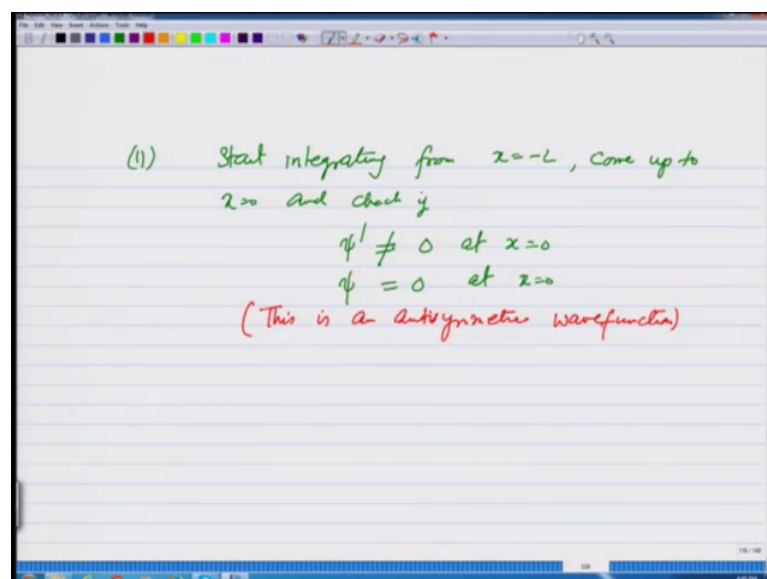 (11) Start integrating from x = -L, come up to
x=0 and check if
ψ' ≠ 0 at x=0
ψ = 0 at x=0
(This is an antisymmetric wavefunction)